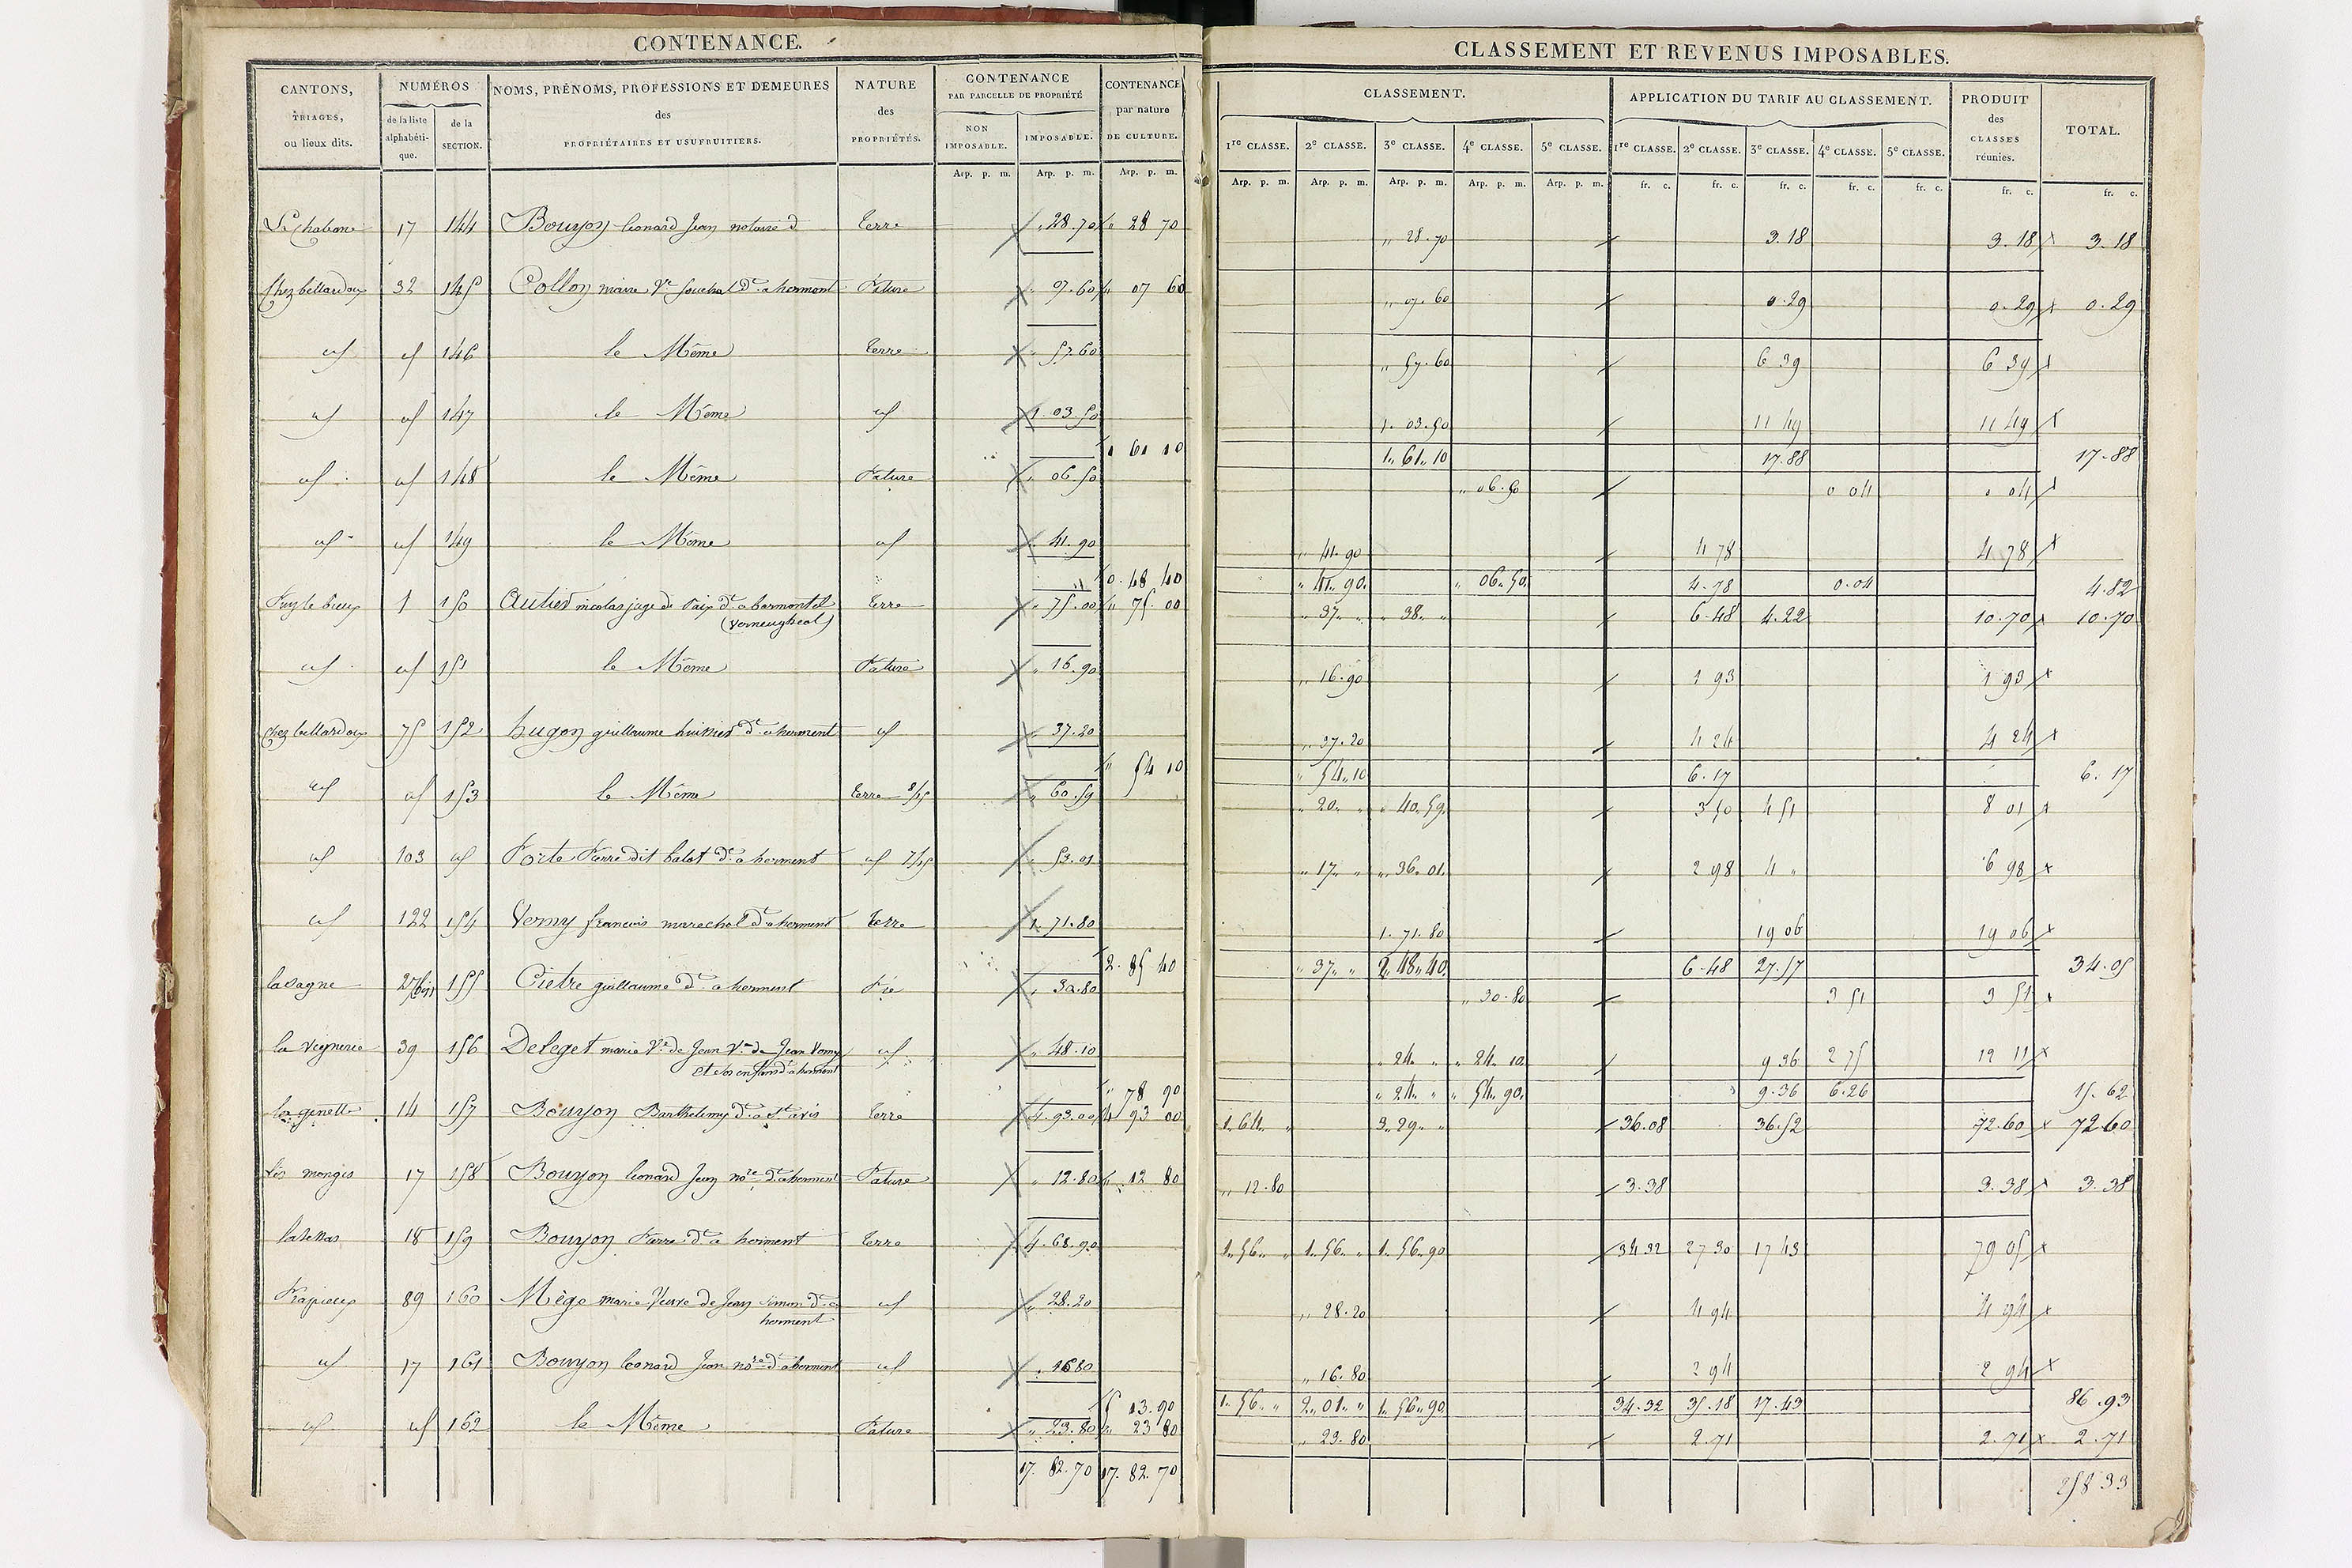 CONTENANCE.
CANTONS, TRIAGES, ou lieux dits.
NUMÉROS
de la liste alphabéti-que.
de la SECTION.
NOMS, PRÉNOMS, PROFESSIONS ET DEMEURES
des
PROPRIÉTAIRES ET USUFRUITIERS.
NATURE des PROPRIÉTÉS.
CONTENANCE PAR PARCELLE DE PROPRIÉTÉ
NON IMPOSABLE.
IMPOSABLE.
CONTENANCE par nature DE CULTURE.
Arp. p. m. Arp. p. m. Arp. p. m.
17 144 Boujon leonard Jean notaire d terre " 28.70 " 28 70
Chez bellardoux 32 145 Collon marie Ve souchal Dt a herment Pature " 07.60 " 07 60
id id 146 le Même terre " 57.60
id id 147 le Même id 1. 03.50
1 61 10
id id 148 le Même Pature " 06.50
id id 149 le Même id " 41.90
0. 48 40
Puy le bieux 1 150 Autier nicolas juge de Paix Dt a barmontel terre " 75.00 " 75 00
(Verneugheol)
id id 151 le Même Pature " 16.90
Chez bellardoux 75 152 hugon guillaume huissier Dt a herment id " 37.20
" 54 10
id id 153 le Même terre 8/15 " 60.59
id 103 id Porte Pierre dit balot Dt a herment id 7/15 " 53.01
id 122 154 Verny francois marechal Dt a herment terre 1. 71.80
2. 85 40
lasagne 27 bis 155 guillaume Dt a herment Pré " 30.80
la vignerie 39 156 Deleget marie Ve de Jean Ve de Jean Verny id " 48.10
et ses enfans Dt a herment
" 78 90
la genette 14 157 Boujon Barthelemy Dt a St avis terre 4. 93.00 4 93 00
Les monges 17 158 Boujon leonard Jean nore Dt a herment Pature " 12.80 " 12 80
18 159 Boujon Pierre Dt a herment terre 4. 68.90
89 160 Mège marie Veuve de Jean Simon Dt a id " 28.20
herment
id 17 161 Boujon leonard Jean nore Dt a herment id " 16 80
5 13.90
id id 162 le Même Pature " 23.80 " 23 80
17. 82. 70 17. 82. 70
CLASSEMENT ET REVENUS IMPOSABLES.
CLASSEMENT.
APPLICATION DU TARIF AU CLASSEMENT.
PRODUIT des CLASSES réunies.
TOTAL.
1re CLASSE. 2e CLASSE. 3e CLASSE. 4e CLASSE. 5e CLASSE. 1re CLASSE. 2e CLASSE. 3e CLASSE. 4e CLASSE. 5e CLASSE.
Arp. p. m. Arp. p. m. Arp. p. m. Arp. p. m. Arp. p. m. fr. c. fr. c. fr. c. fr. c. fr. c. fr. c. fr. c.
" 28.70 3.18 3.18 3.18
" 07.60 0.29 0.29 0.29
" 57.60 6 39 6 39
1. 03.50 11 49 11 49
1. 61. 10 17.88 17.88
" 06.50 0 04 0 04
" 41.90 4 78 4 78
" 41. 90. " 06. 50. 4.78 0.04 4.82
" 37 " " 38 " 6.48 4.22 10.70 10.70
" 16.90 1 93 1 93
" 37.20 4 24 4 24
" 54.10 6.17 6.17
" 20 " " 40. 59. 3 50 4 51 8 01
" 17 " " 36. 01. 2 98 4 " 6 98
1. 71. 80 19 06 19 06
" 37 " 2. 48. 40. 6.48 27.57 34.05
" 30.80 3 51 3 51
" 24 " " 24. 10. 9 36 2 75 12 11
" 24 " " 54. 90. 9.36 6.26 15.62
1. 64 " 3. 29 " 36.08 36.52 72.60 72.60
" 12.80 3.38 3.38 3.38
1. 56 " 1. 56 " 1. 56.90 34 32 27 30 17 43 79 05
" 28.20 4 94 4 94
" 16.80 2 94 2 94
1. 56 " 2. 01 " 1. 56.90 34.32 35.18 17.43 86.93
" 23.80 2.71 2.71 2.71
258 33